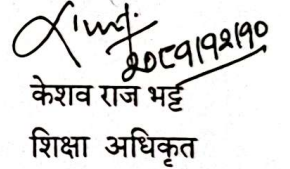 २०८१।१२।१०
केशव राज भट्ट
शिक्षा अधिकृत